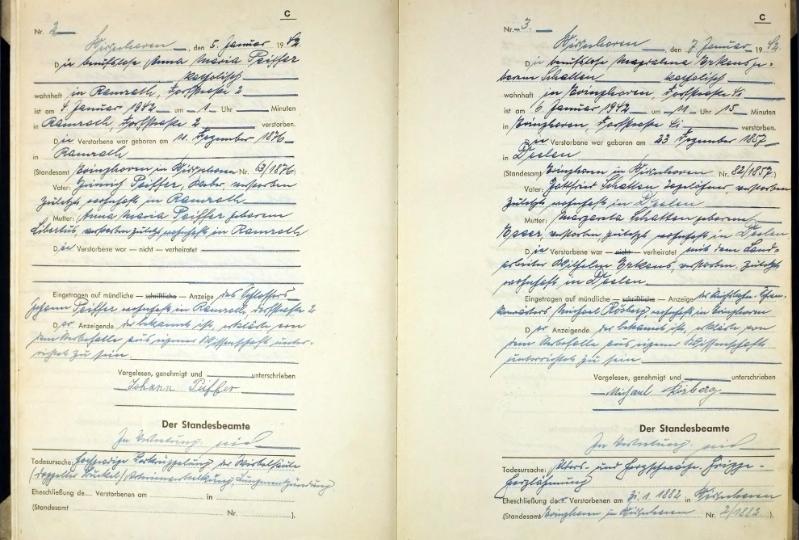 C
Nr. 2
, den 5. Januar 1942
Die berufslose Anna Maria Peiffer
katholisch
wohnhaft in Ramrath, Dorfstraße 2
ist am 4. Januar 1942 um 1 Uhr Minuten
in Ramrath, Dorfstraße 2 verstorben.
Die Verstorbene war geboren am 11. Dezember 1876
in Ramrath
(Standesamt Evinghoven in Nr. 63/1876)
Vater: Heinrich Peiffer, verstorben
zuletzt wohnhaft in Ramrath
Mutter: Anna Maria Peiffer geborene
verstorben zuletzt wohnhaft in Ramrath
Die Verstorbene war — nicht — verheiratet
Eingetragen auf mündliche — schriftliche — Anzeige des Schlossers
Johann Peiffer, wohnhaft in Ramrath, Dorfstraße 2
Der Anzeigende der bekannt ist, erklärte von
dem Sterbefalle aus eigener Wissenschaft unter-
richtet zu sein
Vorgelesen, genehmigt und unterschrieben
Johann Peiffer
Der Standesbeamte
In Vertretung
Todesursache: Verkrüppelung der Wirbelsäule
(doppelter Buckel) Lungenentzündung
Eheschließung de Verstorbenen am in
(Standesamt Nr. ).
C
Nr. 3
, den 7. Januar 1942
Die berufslose Magdalena Erkens ge-
borene Schatten katholisch
wohnhaft in Evinghoven, Dorfstraße
ist am 6. Januar 1942 um 11 Uhr 15 Minuten
in Evinghoven, Dorfstraße verstorben.
Die Verstorbene war geboren am 23 Dezember 1857
in Deelen
(Standesamt Evinghoven in Nr. 82/1857)
Vater: Gottfried Schatten, Tagelöhner verstorben
zuletzt wohnhaft in Deelen
Mutter: Margareta Schatten geborene
verstorben, zuletzt wohnhaft in Deelen
Die Verstorbene war — nicht — verheiratet mit dem Land-
arbeiter Wilhelm Erkens, verstorben, zuletzt
wohnhaft in Deelen.
Eingetragen auf mündliche — schriftliche — Anzeige des
Michael wohnhaft in Evinghoven
Der Anzeigende der bekannt ist, erklärte von
dem Sterbefalle aus eigener Wissenschaft
unterrichtet zu sein
Vorgelesen, genehmigt und unterschrieben
Michael
Der Standesbeamte
In Vertretung
Todesursache: Alters- und Herzschwäche, Grippe-
Herzlähmung
Eheschließung der Verstorbenen am 1. 1882 in
(Standesamt Evinghoven in Nr. 2/1882 ).